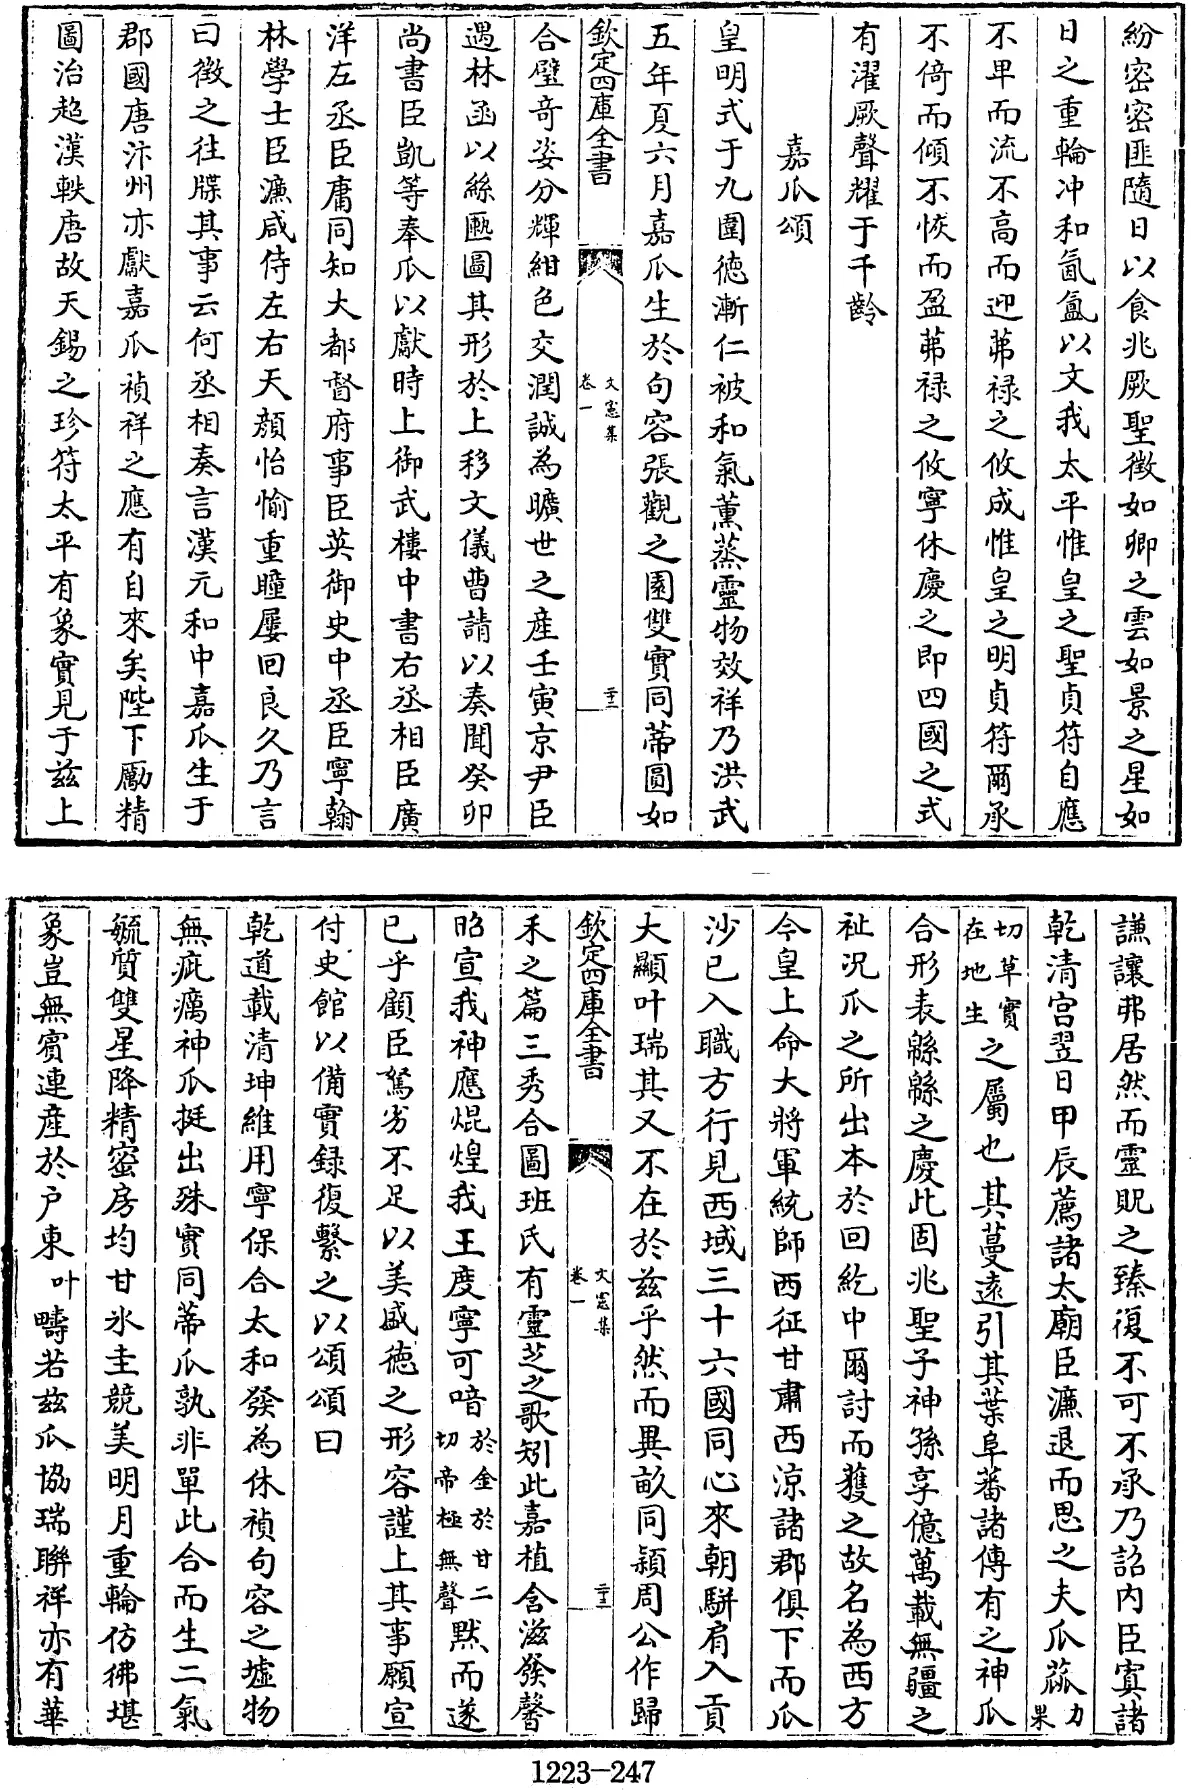 紛密密匪隨日以食兆厥聖徵如卿之雲如景之星如
日之重輪冲和氤氳以文我太平惟皇之聖貞符自應
不卑而流不高而迎茀禄之攸成惟皇之明貞符爾承
不倚而傾不恢而盈茀禄之攸寧休慶之即四國之式
有濯厥聲耀于千齡
嘉瓜頌
皇明式于九圍德漸仁被和氣薰蒸靈物效祥乃洪武
五年夏六月嘉瓜生於句容張觀之園雙實同蒂圓如
欽定四庫全書
文憲集
卷一
二十三
合璧奇姿分輝紺色交潤誠為曠世之産壬寅京尹臣
遇林函以絲匭圖其形於上移文儀曹請以奏聞癸卯
尚書臣凱等奉瓜以獻時上御武樓中書右丞相臣廣
洋左丞臣庸同知大都督府事臣英御史中丞臣寧翰
林學士臣濂咸侍左右天顔怡愉重瞳屢回良久乃言
曰徵之往牒其事云何丞相奏言漢元和中嘉瓜生于
郡國唐汴州亦獻嘉瓜禎祥之應有自來矣陛下勵精
圖治超漢軼唐故天錫之珍符太平有象實見于兹上
謙讓弗居然而靈貺之臻復不可不承乃詔内臣寘諸
乾清宫翌日甲辰薦諸太廟臣濂退而思之夫瓜蓏力果
切草實在地生之屬也其蔓遠引其葉阜蕃諸傳有之神瓜
合形表緜緜之慶此固兆聖子神孫享億萬載無疆之
祉況瓜之所出本於回紇中爾討而獲之故名為西方
今皇上命大將軍統師西征甘肅西涼諸郡俱下而瓜
沙已入職方行見西域三十六國同心來朝駢肩入貢
大顯叶瑞其又不在於兹乎然而異畝同穎周公作歸
欽定四庫全書
文憲集
卷一
二十三
禾之篇三秀合圖班氏有靈芝之歌矧此嘉植含滋發馨
昭宣我神應焜煌我王度寧可喑於金於甘二切啼極無聲默而遂
已乎顧臣駑劣不足以美盛德之形容謹上其事願宣
付史館以備實錄復繫之以頌頌曰
乾道載清坤維用寧保合太和發為休禎句容之墟物
無疵癘神瓜挺出殊實同蒂瓜孰非單此合而生二氣
毓質雙星降精蜜房均甘氷圭競美明月重輪仿彿堪
象豈無賓連産於户東叶疇若兹瓜協瑞聯祥亦有華
1223-247